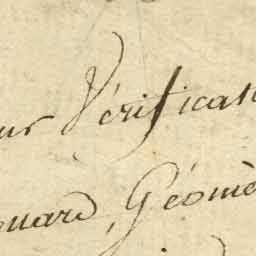 ur Vérificat
ouard, Géomè